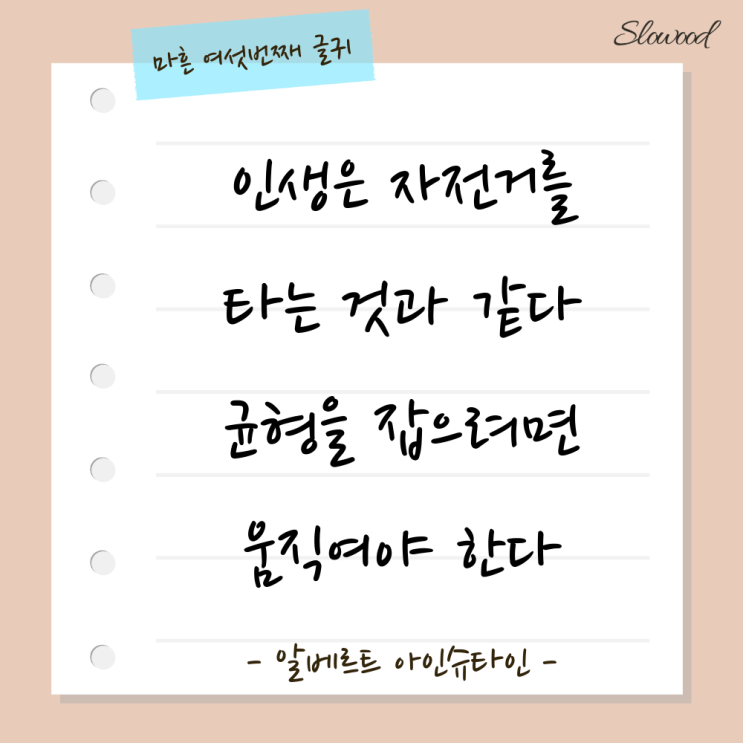 Slowood
마흔 여섯번째 글귀
인생은 자전거를
타는 것과 같다
균형을 잡으려면
움직여야 한다
- 알베르트 아인슈타인 -